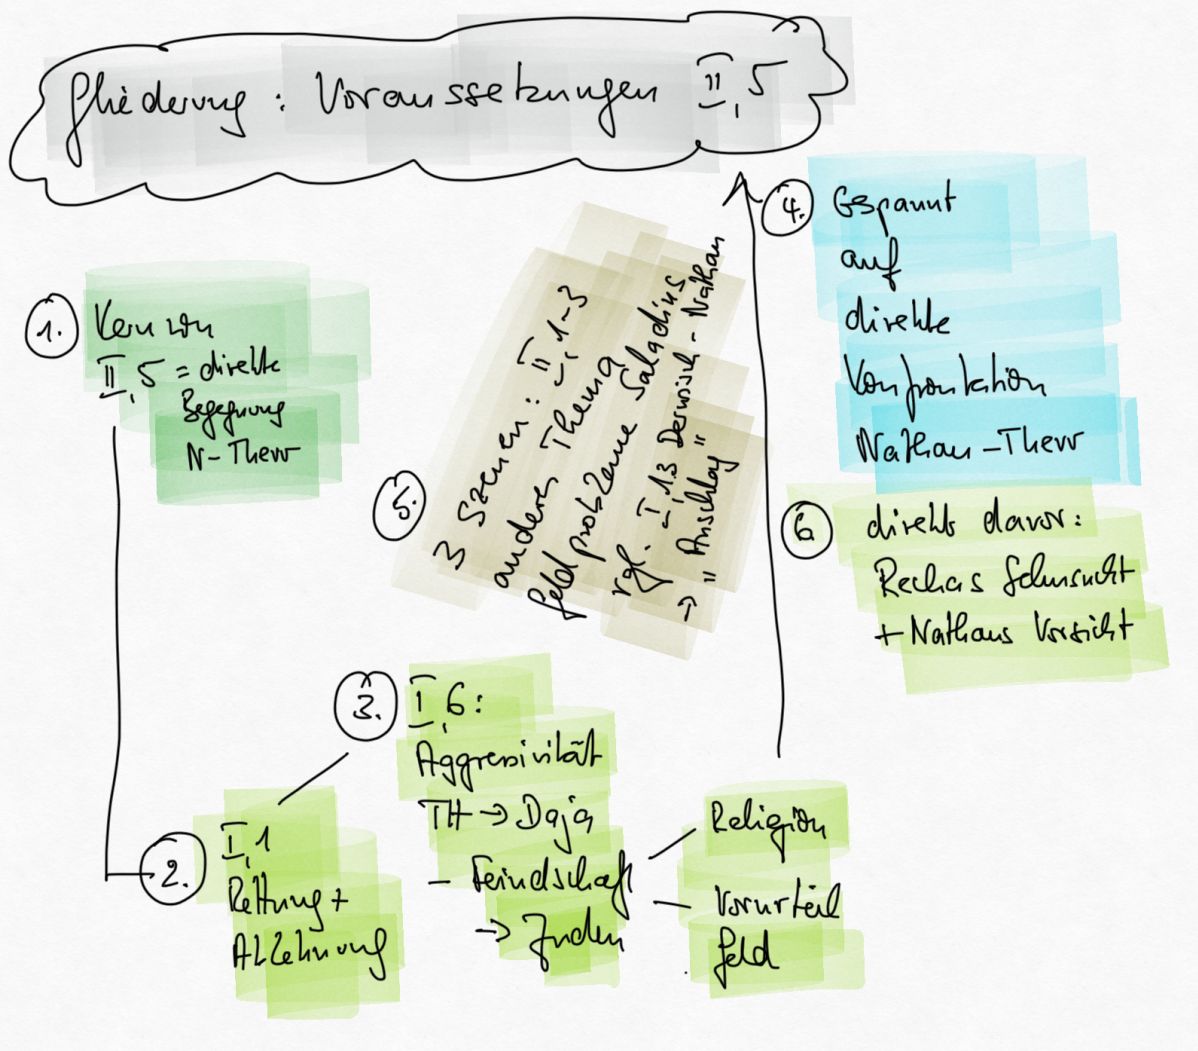 Gliederung: Voraussetzungen II,5
1.
Kern von
II,5 = direkte
Begegnung
N-Therr
2.
I,1
Rettung +
Ablehnung
3.
I,6:
Aggressivität
TH → Daja
- Feindschaft
→ Juden
Religion
Vorurteil
Geld
4.
Gespannt
auf
direkte
Konfrontation
Nathan - Therr
5.
3 Szenen: II, 1-3
anderes Thema
Geldprobleme Saladins
vgl. I,13 Derwisch - Nathan
→ "Anschlag"
6
direkt davor:
Rechas Sehnsucht
+ Nathans Vorsicht